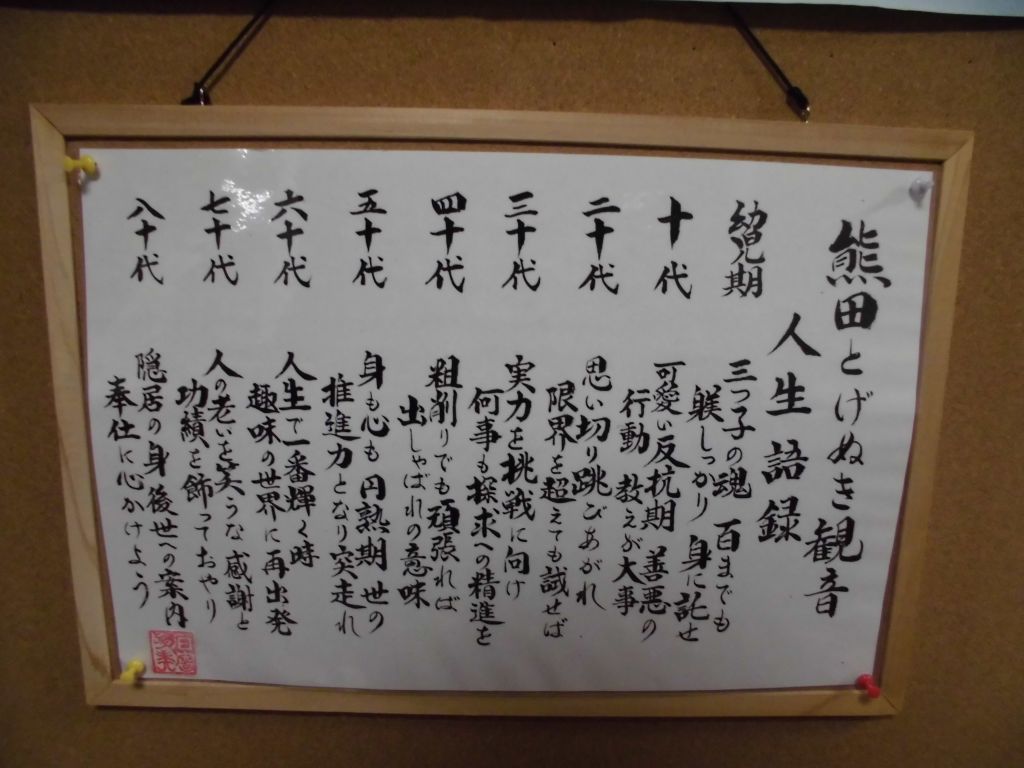 熊田とげぬき観音
人生語録
幼児期
三つ子の魂 百までも
躾しっかり 身に託せ
十代
可愛い反抗期 善悪の
行動 教えが大事
二十代
思い切り跳びあがれ
限界を超えても試せば
三十代
実力を挑戦に向け
何事も探求への精進を
四十代
粗削りでも頑張れば
出しゃばれの意味
五十代
身も心も円熟期 世の
推進力となり突走れ
六十代
人生で一番輝く時
趣味の世界に再出発
七十代
人の老いを笑うな 感謝と
功績を飾っておやり
八十代
隠居の身 後世への案内
奉仕に心かけよう